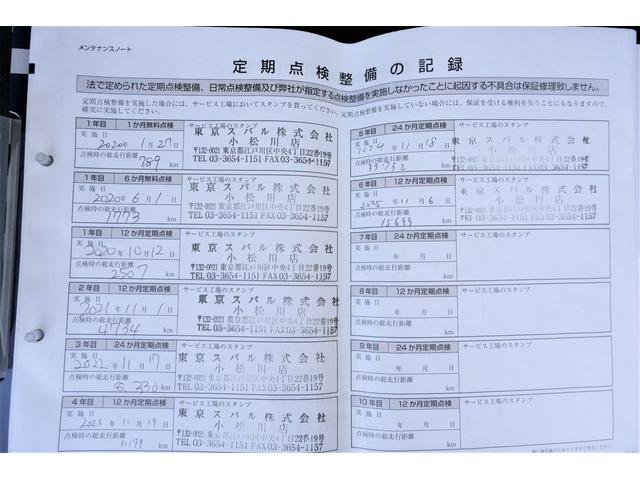 メンテナンスノート
定期点検整備の記録
法で定められた定期点検整備、日常点検整備及び弊社が指定する点検整備を実施しなかったことに起因する不具合は保証修理致しません。
定期点検整備を実施した場合には、サービス工場においてスタンプを貰ってください。定期点検整備を実施していない場合には、保証を受ける権利を失うことにもなりますので、
確実に実施してください。
1年目 1か月無料点検 サービス工場のスタンプ
実施日
2020年1月27日
点検時の総走行距離
789 km
東京スバル株式会社
小松川店
〒132-0021 東京都江戸川区中央4丁目22番19号
TEL 03-3654-1151 FAX 03-3654-1157
1年目 6か月無料点検 サービス工場のスタンプ
実施日
2020年6月1日
点検時の総走行距離
1773 km
東京スバル株式会社
小松川店
〒132-0021 東京都江戸川区中央4丁目22番19号
TEL 03-3654-1151 FAX 03-3654-1157
1年目 12か月定期点検 サービス工場のスタンプ
実施日
2020年10月12日
点検時の総走行距離
2507 km
東京スバル株式会社
小松川店
〒132-0021 東京都江戸川区中央4丁目22番19号
TEL 03-3654-1151 FAX 03-3654-1157
2年目 12か月定期点検 サービス工場のスタンプ
実施日
2021年11月1日
点検時の総走行距離
4734 km
東京スバル株式会社
小松川店
〒132-0021 東京都江戸川区中央4丁目22番19号
TEL 03-3654-1151 FAX 03-3654-1157
3年目 24か月定期点検 サービス工場のスタンプ
実施日
2022年11月17日
点検時の総走行距離
8,230 km
東京スバル株式会社
小松川店
〒132-0021 東京都江戸川区中央4丁目22番19号
TEL 03-3654-1151 FAX 03-3654-1157
4年目 12か月定期点検 サービス工場のスタンプ
実施日
2023年11月19日
点検時の総走行距離
11179 km
東京スバル株式会社
小松川店
〒132-0021 東京都江戸川区中央4丁目22番19号
TEL 03-3654-1151 FAX 03-3654-1157
5年目 24か月定期点検 サービス工場のスタンプ
実施日
2024年11月18日
点検時の総走行距離
13732 km
東京スバル株式会社
小松川店
〒132-0021 東京都江戸川区中央4丁目22番19号
TEL 03-3654-1151 FAX 03-3654-1157
6年目 12か月定期点検 サービス工場のスタンプ
実施日
2025年11月6日
点検時の総走行距離
15699 km
東京スバル株式会社
小松川店
〒132-0021 東京都江戸川区中央4丁目22番19号
TEL 03-3654-1151 FAX 03-3654-1157
7年目 24か月定期点検 サービス工場のスタンプ
実施日
年 月 日
点検時の総走行距離
km
8年目 12か月定期点検 サービス工場のスタンプ
実施日
年 月 日
点検時の総走行距離
km
9年目 24か月定期点検 サービス工場のスタンプ
実施日
年 月 日
点検時の総走行距離
km
10年目 12か月定期点検 サービス工場のスタンプ
実施日
年 月 日
点検時の総走行距離
km